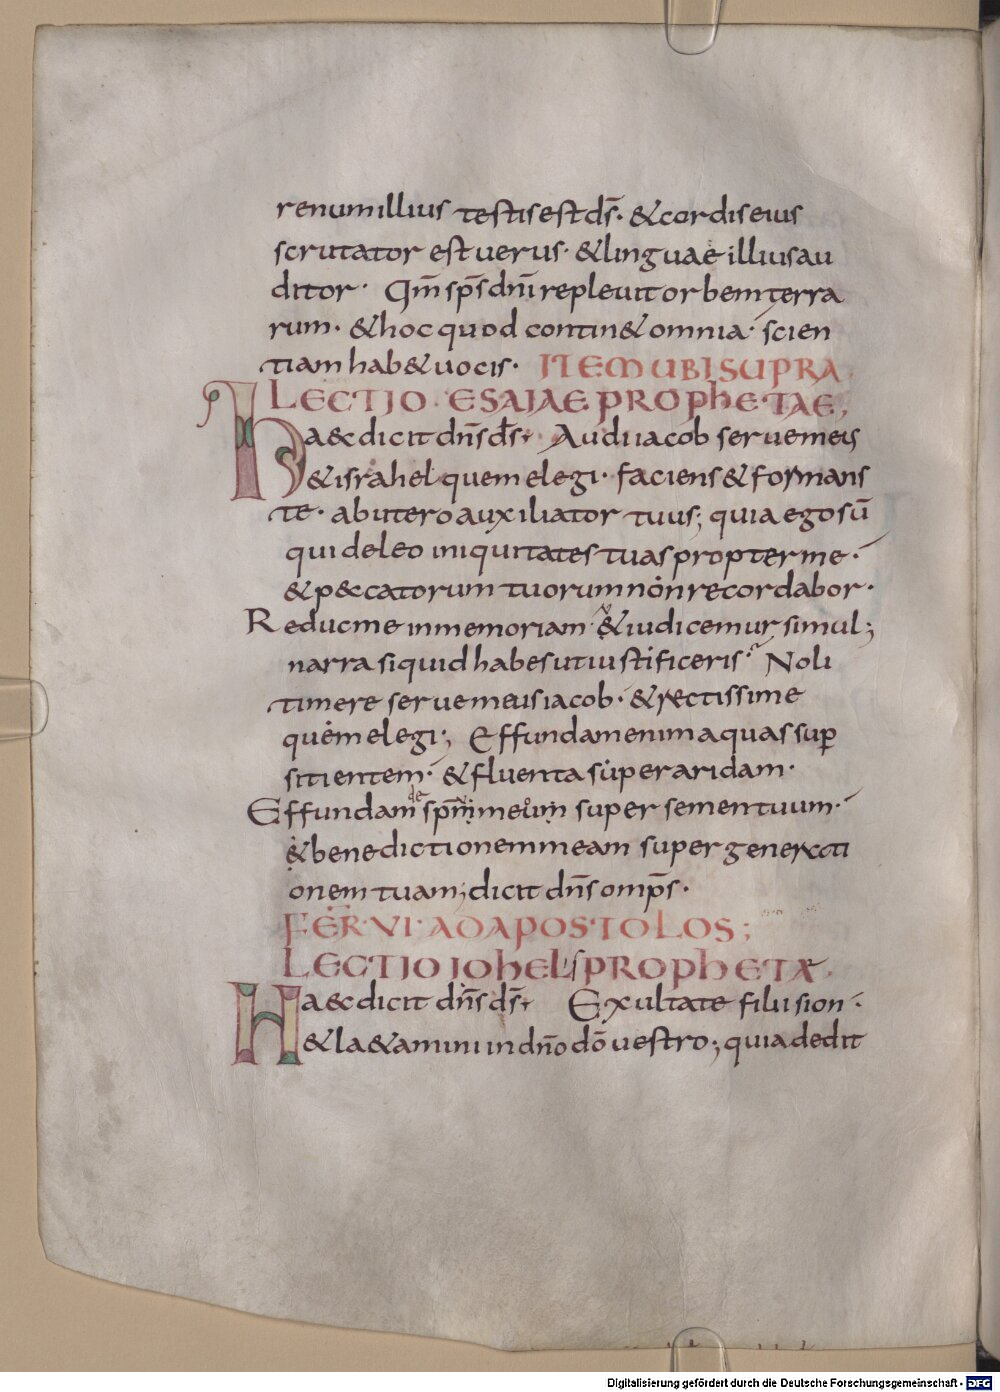 renum illius testis est ds̄. & cordis eius
scrutator est uerus. & linguae illius au
ditor. Qm̄ sps̄ dn̄i repleuit orbem terra
rum. & hoc quod contin& omnia. scien
tiam hab& uocis. ITEM UBI SUPRA
LECTIO ESAIAE PROPhETAE;
Haec dicit dn̄s ds̄. Audi iacob serue meus
& israhel quem elegi. faciens & formans
te. ab utero auxiliator tuus; quia ego sū
qui deleo iniquitates tuas propter me.
& peccatorum tuorum non recordabor.
Reduc me in memoriam & iudicemur simul;
narra si quid habes ut iustificeris. Noli
timere serue meus iacob. & rectissime
quem elegi; Effundam enim aquas sup̄
sitientem. & fluenta super aridam.
Effundam de spm̄ meum super semen tuum.
& benedictionem meam super generati
onem tuam; dicit dn̄s omps̄.
FER̄ VI AD APOSTOLOS;
LECTIO IOhELIS PROPhETAE
Haec dicit dn̄s ds̄. Exultate filii sion.
& laetamini in dn̄o dō uestro; quia dedit
Digitalisierung gefördert durch die Deutsche Forschungsgemeinschaft - DFG